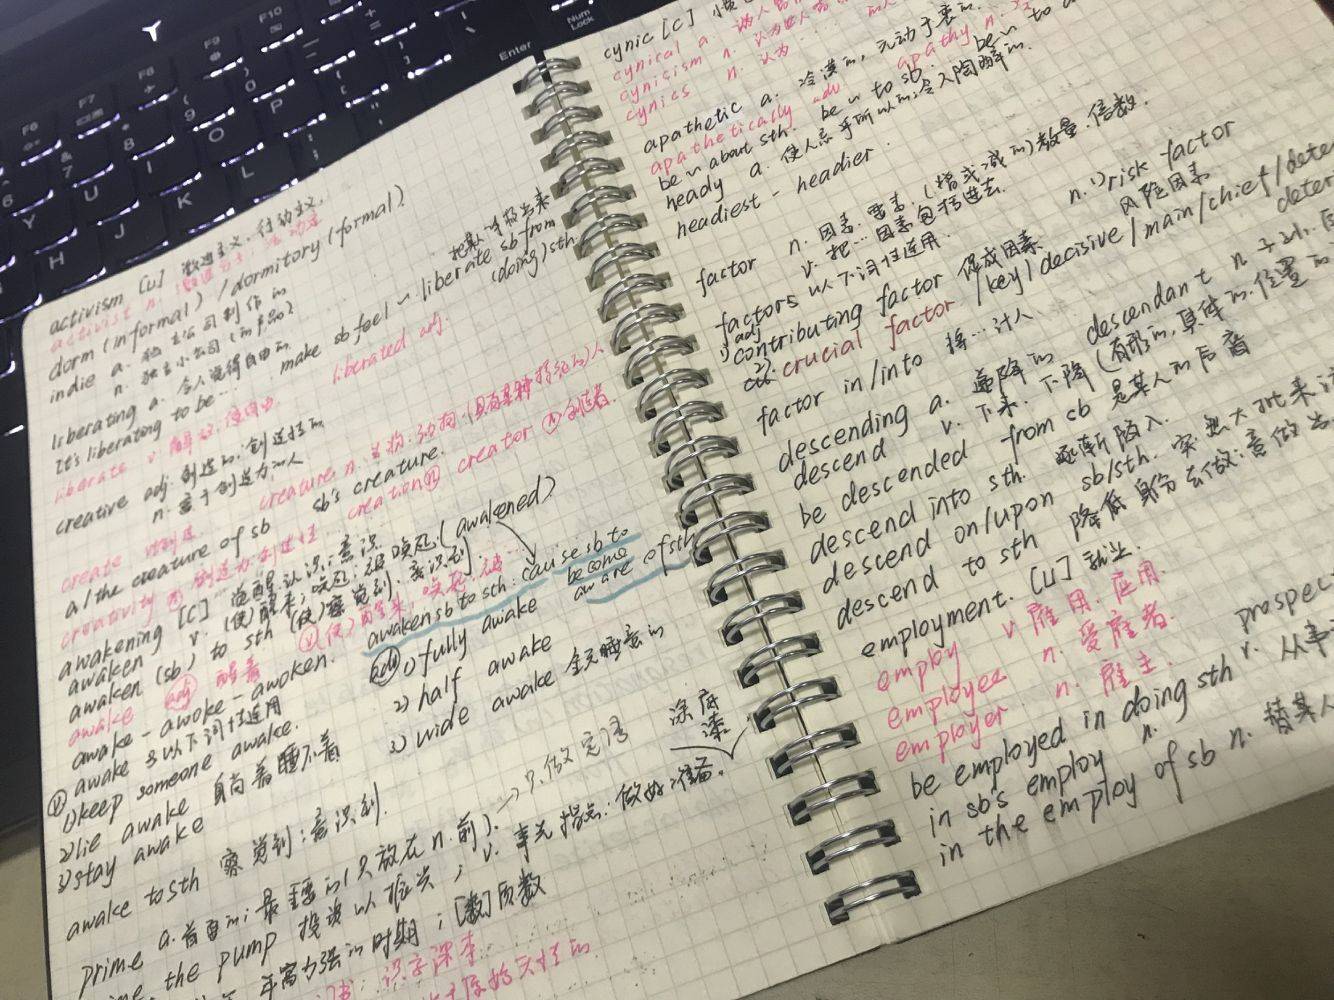 activism [U] 激进主义,行动主义,
activist n.
dorm (informal) / dormitory (formal)
indie a. 独立公司制作的
n. 独立小公司
liberating a. 令人觉得自由的
It's liberating to be... make sb feel ~ liberate sb from (doing) sth
liberate v. 解放,使自由 liberated adj.
creative adj. 创造的,创造性的
n. 富于创造力的人
create 创造 creature n. 生物,动物,(具有某种特征的)人
a/the creature of sb sb's creature.
creativity 创造力,创造性 creation n creator n 创造者
awakening [C] 觉醒,认识,意识
awaken v. (使)醒来;唤起,被唤起 (awakened)
awaken (sb) to sth (使)察觉到,意识到.
awaken sb to sth: cause sb to become aware of sth
awake adj 醒着
awake - awoke - awoken.
adj 1) fully awake
2) half awake
3) wide awake 全无睡意的
awake 与以下词性连用
1) keep someone awake.
2) lie awake 躺着睡不着
3) stay awake
awake to sth 察觉到;意识到.
prime a. 首要的;最主要的(只放在 n. 前). → 只做定语
v. 事先指点;做好准备. 涂底漆
the pump 投资以振兴
年富力强的时期;[数]质数
识字课本
cynic [C]
cynical a.
cynicism n.
cynics n. 认为
apathetic a. 冷漠的,无动于衷的.
apathetically adv apathy n.
be ~ about sth. be ~ to sb. be ~ to
heady a. 使人忘乎所以的;令人陶醉的
headiest - headier.
factor n. 因素,要素,(增或减的)数量,倍数.
v. 把...因素包括进去.
factors 以下词性连用 n. 1) risk factor 风险因素
1) adj contributing factor 促成因素
2) crucial factor / key / decisive / main / chief /
factor in/into 将...计入
descending a. 递降的 descendant n 子孙,
descend v. 下来,下降(有形的,具体的,位置的
be descended from sb 是某人的后裔
descend into sth. 逐渐陷入.
descend on/upon sb/sth. 突然大批来
descend to sth 降低身份去做;
employment. [U] 就业.
employ v 雇用,应用.
employee n. 受雇者.
employer n. 雇主.
be employed in doing sth v. 从事
in sb's employ n.
in the employ of sb n. 替某人